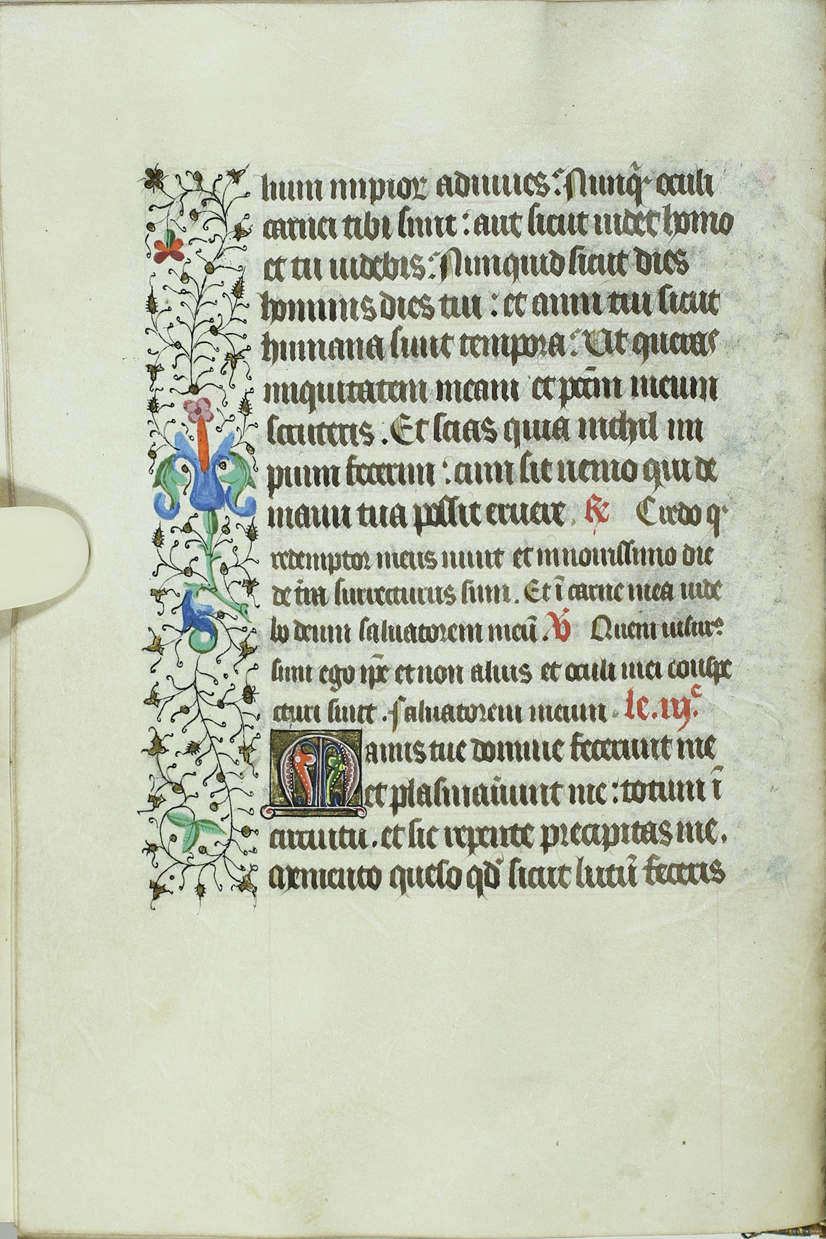 lium impior adiuues : Nunq̃ oculi
carnei tibi sunt : aut sicut uidet homo
et tu uidebis : Nunquid sicut dies
hominis dies tui : et anni tui sicut
humana sunt tempora : Ut queras
iniquitatem meam et pctm̄ meum
scruteris . Et scias quia nichil im
pium fecerim : cum sit nemo qui de
manu tua possit eruere . R̸ Credo q
redemptor meus uiuit et in nouissimo die
de tr̄a surrecturus sum . Et ī carne mea uide
bo deum saluatorem meū . V̸ Quem uisur
sum ego ip̄e et non alius et oculi mei conspe
cturi sunt . saluatorem meum . le . iijᶜ.
Manus tue domine fecerunt me
et plasmauerunt me : totum ī
circuitu . et sic repente precipitas me .
Memento queso qd sicut lutū feceris